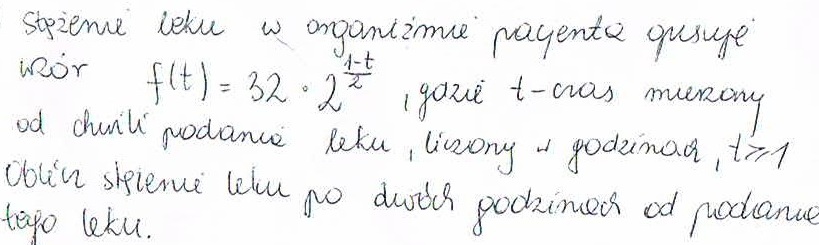 Stężenie leku w organiźmie pacjenta opisuje
wzór f(t) = 32 · 2^{\frac{1-t}{2}}, gdzie t-czas mierzony
od chwili podania leku, liczony w godzinach, t⩾1
Oblicz stężenie leku po dwóch godzinach od podania
tego leku.